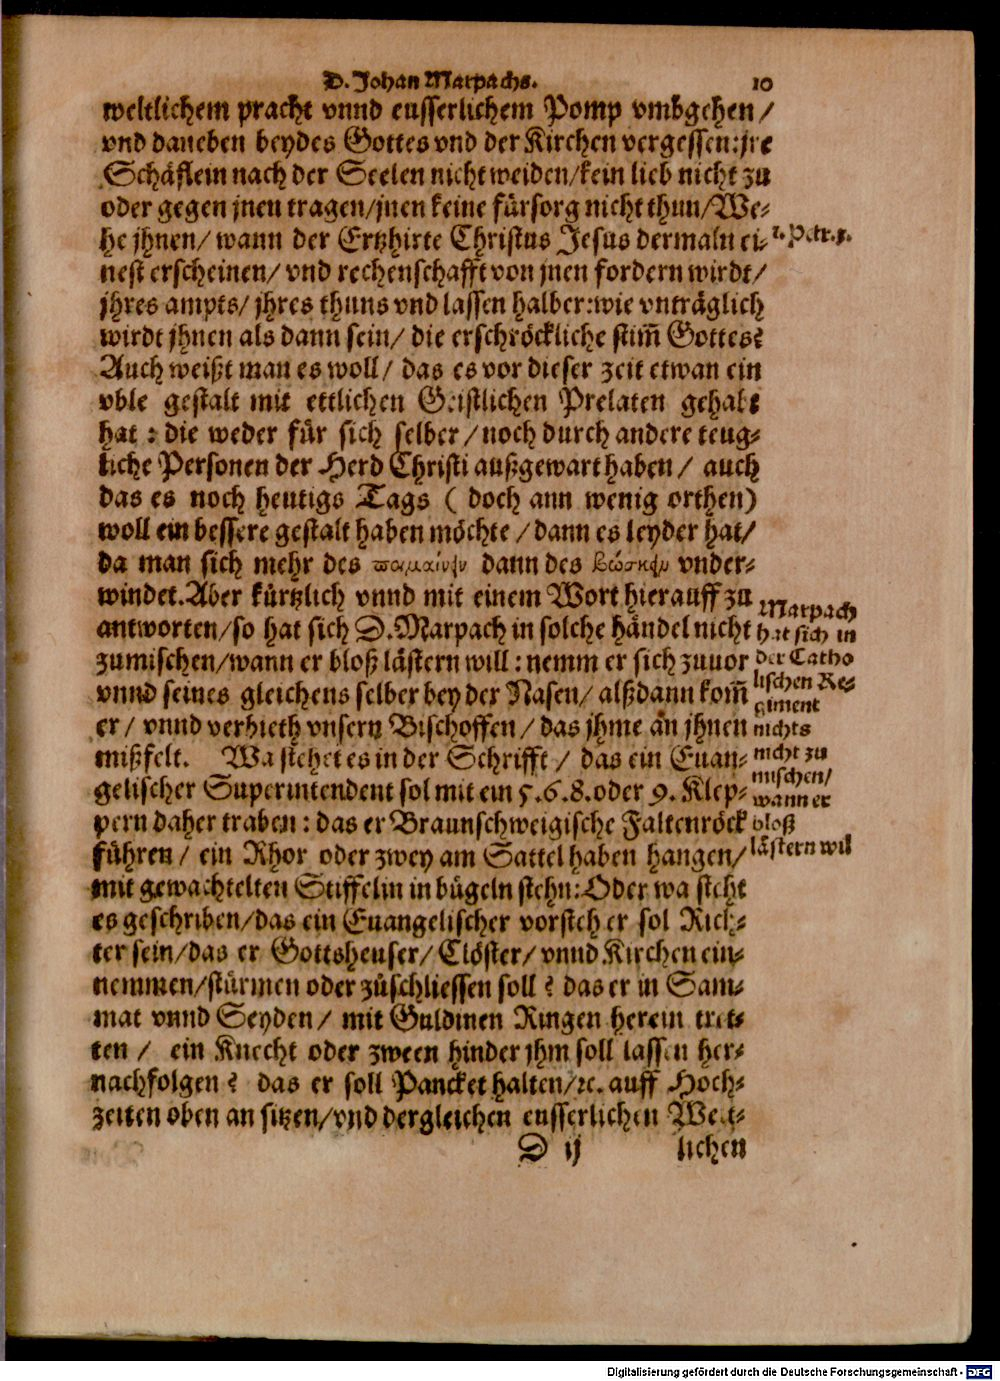 D. Johan Marpachs. 10
weltlichem pracht vnnd eusserlichem Pomp vmbgehen/
vnd daneben beydes Gottes vnd der Kirchen vergessen: jre
Schäflein nach der Seelen nicht weiden/kein lieb nicht zu
oder gegen jnen tragen/jnen keine fürsorg nicht thun/We⸗
he jhnen/ wann der Ertzhirte Christus Jesus dermaln ei⸗
1. Petr. 5.
nest erscheinen/ vnd rechenschafft von jnen fordern wirdt/
jhres ampts/ jhres thuns vnd lassen halber: wie vnträglich
wirdt jhnen als dann sein/ die erschröckliche stim̃ Gottes?
Auch weißt man es woll/ das es vor dieser zeit etwan ein
vble gestalt mit ettlichen Geistlichen Prelaten gehabt
hat : die weder für sich selber/ noch durch andere teug⸗
liche Personen der Herd Christi außgewart haben/ auch
das es noch heutigs Tags ( doch ann wenig orthen)
woll ein bessere gestalt haben möchte/ dann es leyder hat/
da man sich mehr des ποιμαίνειν dann des βόσκειν vnder⸗
windet. Aber kürtzlich vnnd mit einem Wort hierauff zu
antworten/ so hat sich D. Marpach in solche händel nicht
zumischen/wann er bloß lästern will : nemm er sich zuuor
vnnd seines gleichens selber bey der Nasen/ alßdann kom̃
er/ vnnd verbieth vnsern Bischoffen/ das jhme an jhnen
mißfelt. Wa stehet es in der Schrifft/ das ein Euan⸗
gelischer Superintendent sol mit ein 5. 6. 8. oder 9. Klep⸗
pern daher traben : das er Braunschweigische Faltenröck
führen/ ein Rhor oder zwey am Sattel haben hangen/
Marpach
hat sich in
der Catho
lischen Re⸗
giment
nichts
nicht zu
mischen/
wann er
bloß
lästern wil
mit gewachtelten Stiffelin in bügeln stehn: Oder wa steht
es geschriben/das ein Euangelischer vorsteher sol Rich⸗
ter sein/das er Gottsheuser/ Clöster/ vnnd Kirchen ein⸗
nemmen/stürmen oder zůschliessen soll? das er in Sam⸗
mat vnnd Seyden/ mit Guldinen Ringen herein tret⸗
ten/ ein Knecht oder zween hinder jhm soll lassen her⸗
nachfolgen? das er soll Pancket halten/ꝛc. auff Hoch⸗
zeiten oben an sitzen/vnd dergleichen eusserlichen Welt⸗
D ij lichen
Digitalisierung gefördert durch die Deutsche Forschungsgemeinschaft - DFG